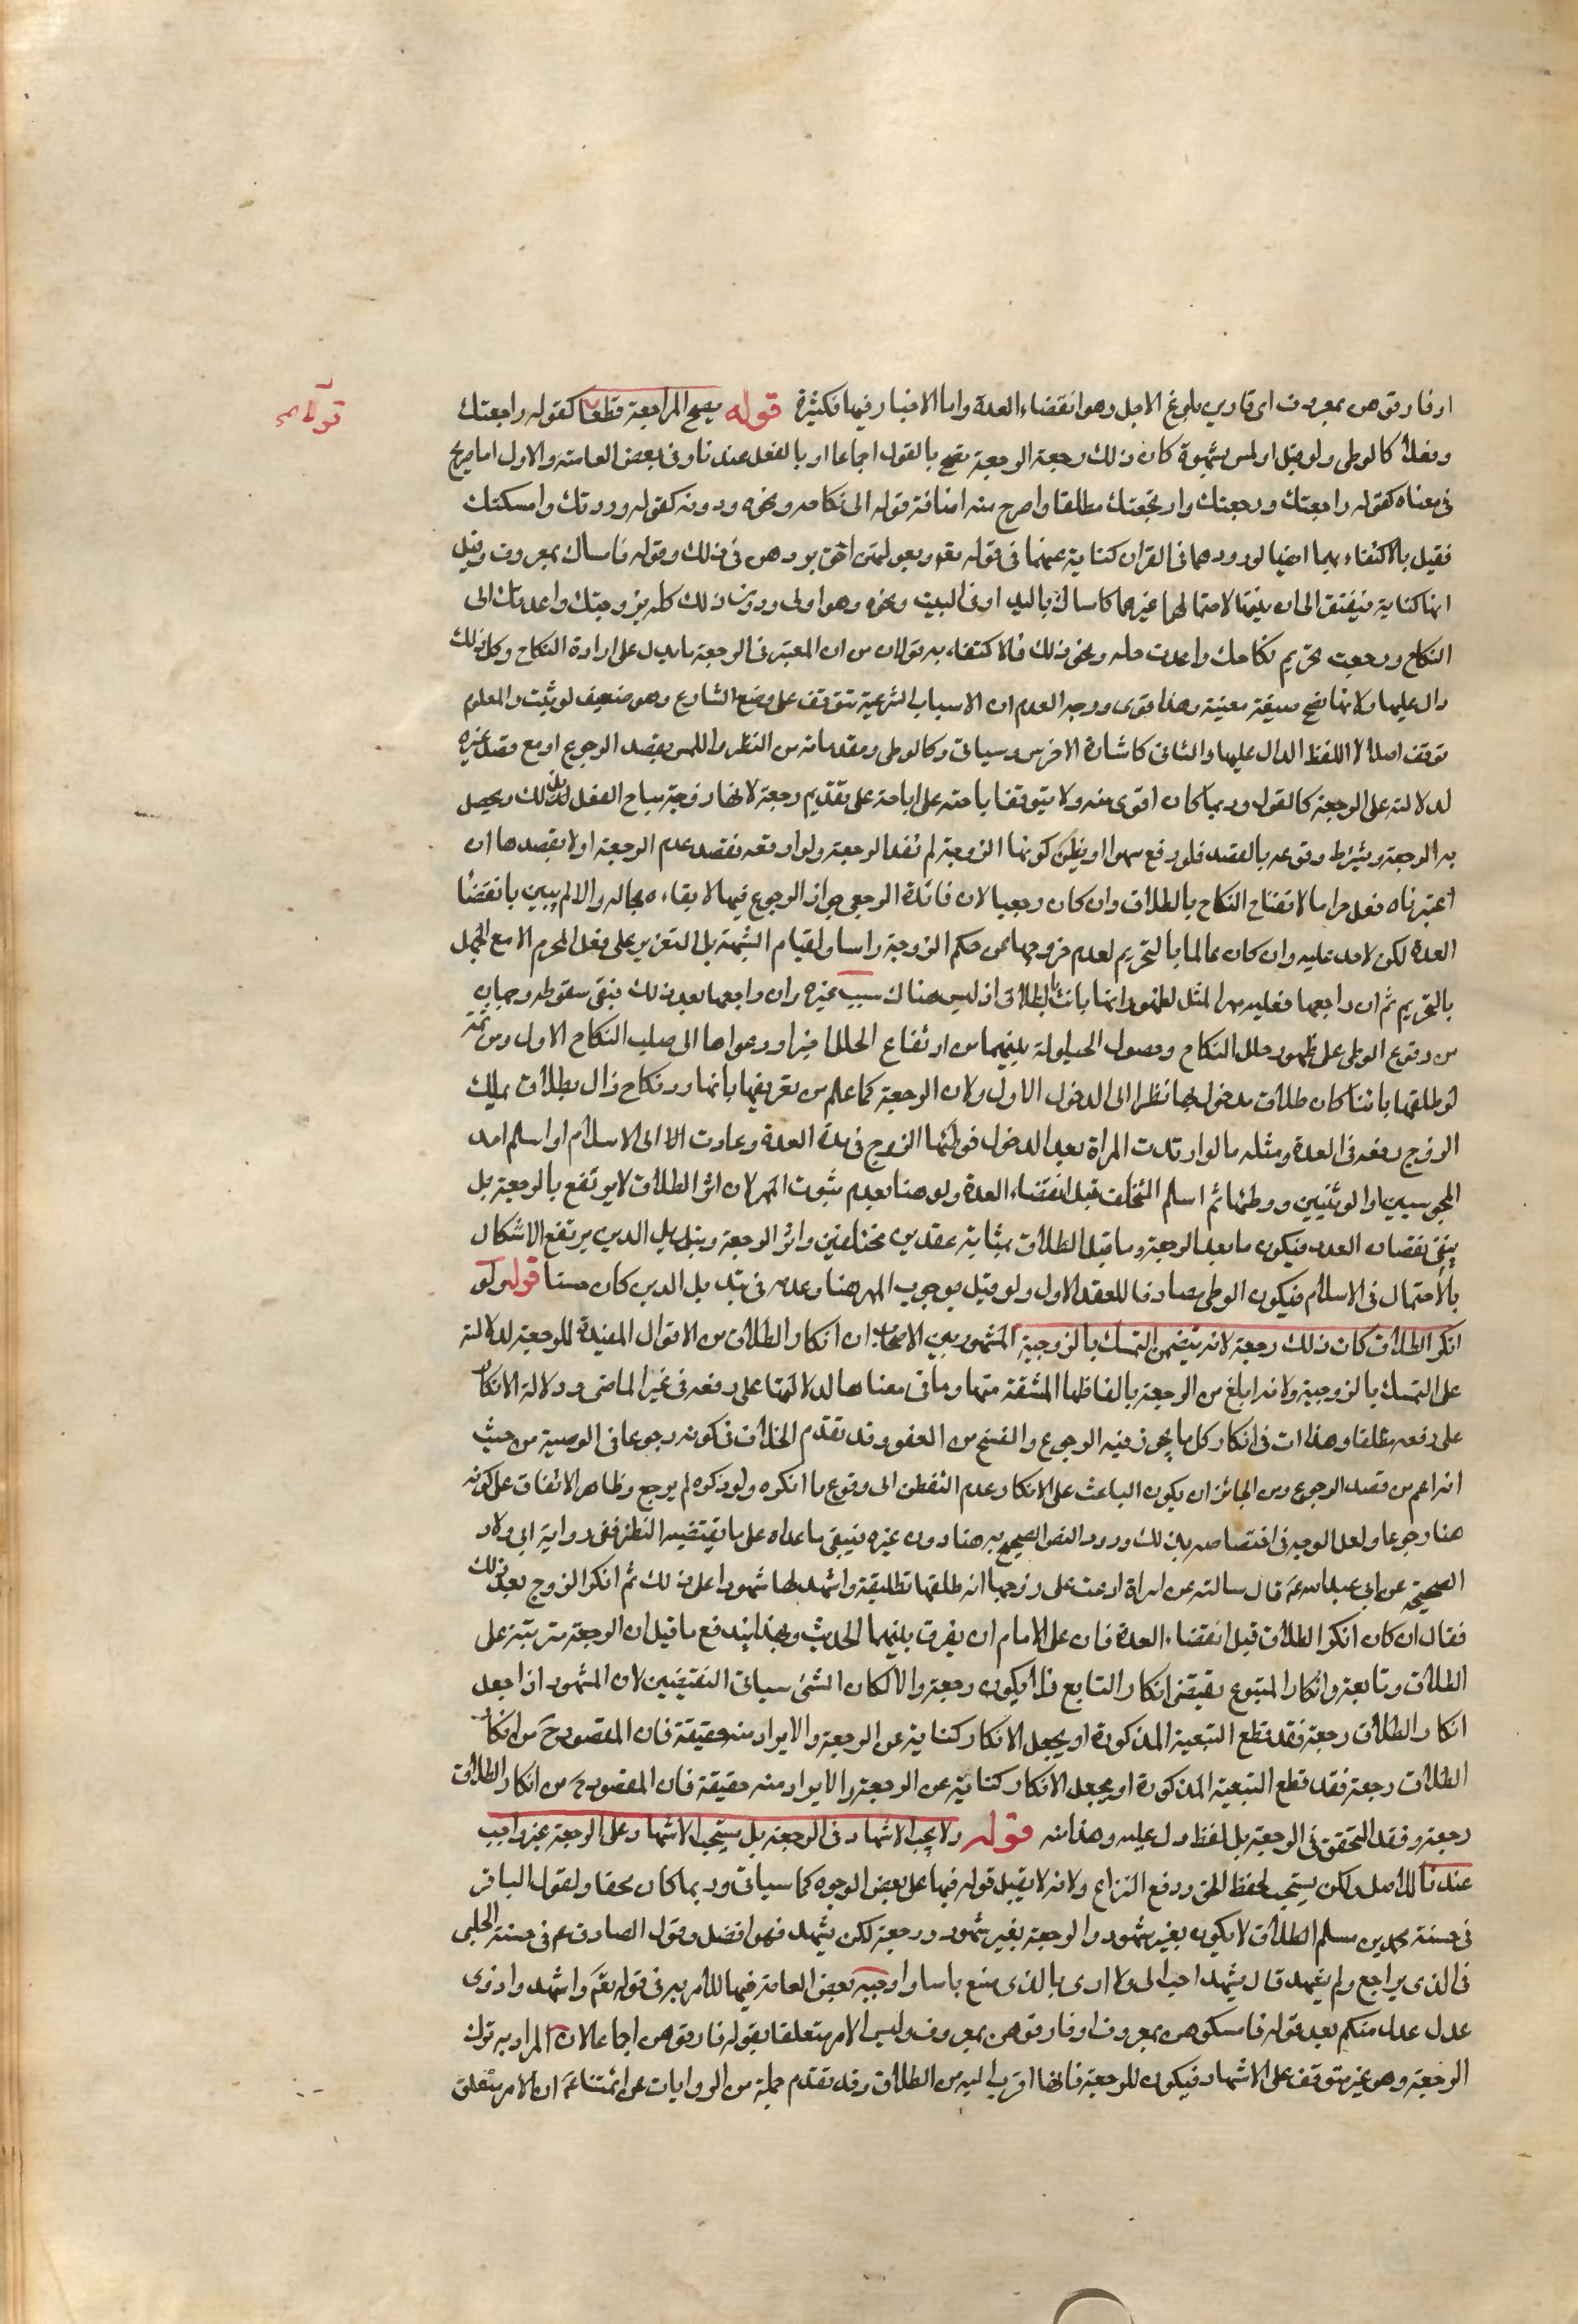 او فارقوهن بمعروف اى قاربن بلوغ الاجل وهو انقضاء العدة واما الاخبار فيها فكثيرة قوله يصح المراجعة قطعا كقوله راجعتك
وفعلا كالوطى ولو قبل او لمس بشهوة كان ذلك رجعة الرجعة تصح بالقول اجماعا او بالفعل عندنا وفى بعض العامة والاول اما صريح
فى معناه كقوله راجعتك ورجعتك وارتجعتك مطلقا واصرح منه اضافة قوله الى نكاحه ونحوه ودونه كقوله رددتك وامسكتك
فقيل بالاكتفاء بهما ايضا لورودهما فى القران كناية عنهما فى قوله تعم وبعولتهن احق بردهن فى ذلك وقوله فامساك بمعروف وقيل
انها كناية فيفتقر الى ان ينيتها لاحتمالهما غيرهما كامساك باليد او فى البيت ونحوه وهو اولى ودون ذلك كله تزوجتك واعدتك الى
النكاح ورجعت تحريم نكاحك واعدت حله ونحو ذلك فالاكتفاء به قولان من ان المعتبر فى الرجعة ما يدل على ارادة النكاح وكل ذلك
دال عليها ولا تخص صيغة معينة وهذا قوى ووجه العدم ان الاسباب الشرعية تتوقف على وضع الشارع وهو ضعيف لو ثبت والمعلوم
توقف اصل اللفظ الدال عليها والثانى كاشارة الاخرس وسياتى وكالوطى ومقدماته من النظر واللمس بقصد الرجوع او مع قصد غيره
لدلالته على الرجعة كالقول وربما كان اقوى منه ولا يتوقف اباحته على اباحته على تقديم رجعة لانها زوجة يباح الفعل لذلك ويحصل
به الرجعة ويشترط وقوعه بالقصد فلو وقع سهوا او بظن كونها الزوجة لم تفد الرجعة ولو اوقعه بقصد عدم الرجعة او لا بقصدها ان
اعتبرناه فعل حراما لانفتاح النكاح بالطلاق وان كان رجعيا لان فائدة الرجعى جواز الرجوع فيها لا بقاءه بحاله والا لم يبين بانقضاء
العدة لكن لا حد عليه وان كان عالما بالتحريم لعدم خروجها عن حكم الزوجة راسا ولقيام الشبهة بل التعزير على فعل المحرم الا مع الجهل
بالتحريم ثم ان راجعها فعليه مهر المثل لظهور انها بانت بالطلاق اذ ليس هناك سبب غيره وان راجعها بعد ذلك فبقى سقوطه وجهان
من وقوع الوطى على ظهور خلل النكاح وحصول الحيلولة بينهما من ارتفاع الخلل اخيرا وردهما الى صلب النكاح الاول ومن ثمة
لو طلقها بائنا كان طلاق مدخول بها نظرا الى الدخول الاول ولان الرجعة كما علم من تعريفها بانها رد نكاح زال بطلاق يملك
الزوج رفعه فى العدة ومثله ما لو ارتدت المراة بعد الدخول فوطئها الزوج فى مدة العدة وعادت الى الاسلام او اسلم احد
المجوسيين او الوثنيين ووطئها ثم اسلم المتخلف قبل انقضاء العدة ولو هنا بعدم ثبوت المهر لان اثر الطلاق لا يرتفع بالرجعة بل
يبقى نقصان العدد فيكون ما بعد الرجعة وما قبل الطلاق بمثابة عقدين مختلفين واثر الرجعة وتبديل الدين يرتفع الاشكال
بالاحتمال فى الاسلام فيكون الوطى مصادفا للعقد الاول ولو قيل بوجوب المهر هنا وعدمه فى تبديل الدين كان حسنا قوله ولو
انكر الطلاق كان ذلك رجعة لانه يتضمن التمسك بالزوجية المشهور بين الاصحاب ان انكار الطلاق من الاقوال المفيدة للرجعة لدلالته
على التمسك بالزوجية ولانه ابلغ من الرجعة بالفاظها المشتقة منها وما فى معناها لدلالتها على رفعه فى غير الماضى ودلالة الانكار
على رفعه مطلقا وهذا ات فى انكار كل ما يجوز فيه الرجوع والفسخ من العقود وقد تقدم الخلاف فى كونه رجوعا فى الوصية من حيث
انه اعم من قصد الرجوع ومن الجائز ان يكون الباعث على الانكار عدم التفطن الى وقوع ما انكره ولو ذكره لم يرجع وظاهر الاتفاق على كونه
هنا رجوعا ولعل الوجه فى اختصاصه بذلك ورود النص الصحيح به هنا دون غيره فيبقى ما عداه على ما يقتضيه النظر ففى رواية ابى ولاد
الصحيحة عن ابى عبد الله عم قال سالته عن امراة ادعت على زوجها انه طلقها تطليقة واشهد لها شهودا على ذلك ثم انكر الزوج بعد ذلك
فقال ان كان انكر الطلاق قبل انقضاء العدة فان على الامام ان يفرق بينهما الحديث وبهذا يندفع ما قيل ان الرجعة مترتبة على
الطلاق وتابعة وانكار المتبوع يقتضى انكار التابع فلا يكون رجعة والا لكان الشئ سياتى النقيضين لان المشهور اذا جعل
انكار الطلاق رجعة فقد قطع التبعية المذكورة او يجعل الانكار كناية عن الرجعة والا يراد منه حقيقة فان المقصود ح من انكار
الطلاق رجعة فقد قطع التبعية المذكورة او يجعل الانكار كناية عن الرجعة والا يراد منه حقيقة فان المقصود ح من انكار الطلاق
رجعة وفقد التحقق فى الرجعة بل لفظ دل عليه وهذا منه قوله ولا يجب الاشهاد فى الرجعة بل يستحب الاشهاد على الرجعة غير واجب
عندنا للاصل ولكن يستحب لحفظ الحق ورفع النزاع ولانه لا يقبل قوله فيها على بعض الوجوه كما سياتى وربما كان محقا ولقول الباقر
فى حسنة محمد بن مسلم الطلاق لا يكون بغير شهود والرجعة بغير شهود رجعة لكن يشهد فهو افضل وقول الصادق عم فى حسنة الحلبى
فى الذى يراجع ولم يشهد قال يشهد احب الى ولا ارى بالذى صنع باسا واوجبه بعض العامة فيها للامر به فى قوله تعم واشهدوا ذوى
عدل عدل منكم بعد قوله فامسكوهن بمعروف او فارقوهن بمعروف وليس الامر متعلقا بقوله فارقوهن اجماعا لان المراد به ترك
الرجعة وهو غير متوقف على الاشهاد فيكون للرجعة فانها اقرب اليه من الطلاق وقد تقدم جملة من الروايات عن ائمتنا عم ان الامر متعلق